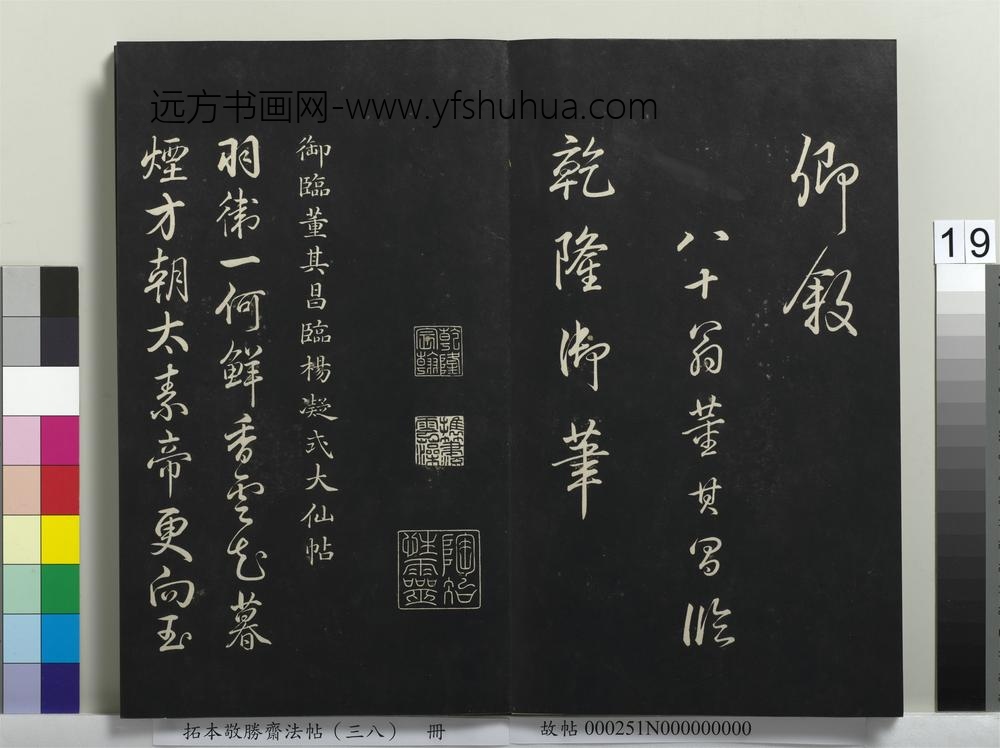 远方书画网-www.yfshuhua.com
卿敘
八十翁董其昌臨
乾隆御筆
乾隆宸翰
摛藻雲漢
陶冶性靈
御臨董其昌臨楊凝式大仙帖
羽衛一何鮮香雲起暮
煙方朝太素帝更向玉
19
拓本敬勝齋法帖(三八) 冊
故帖 000251N000000000